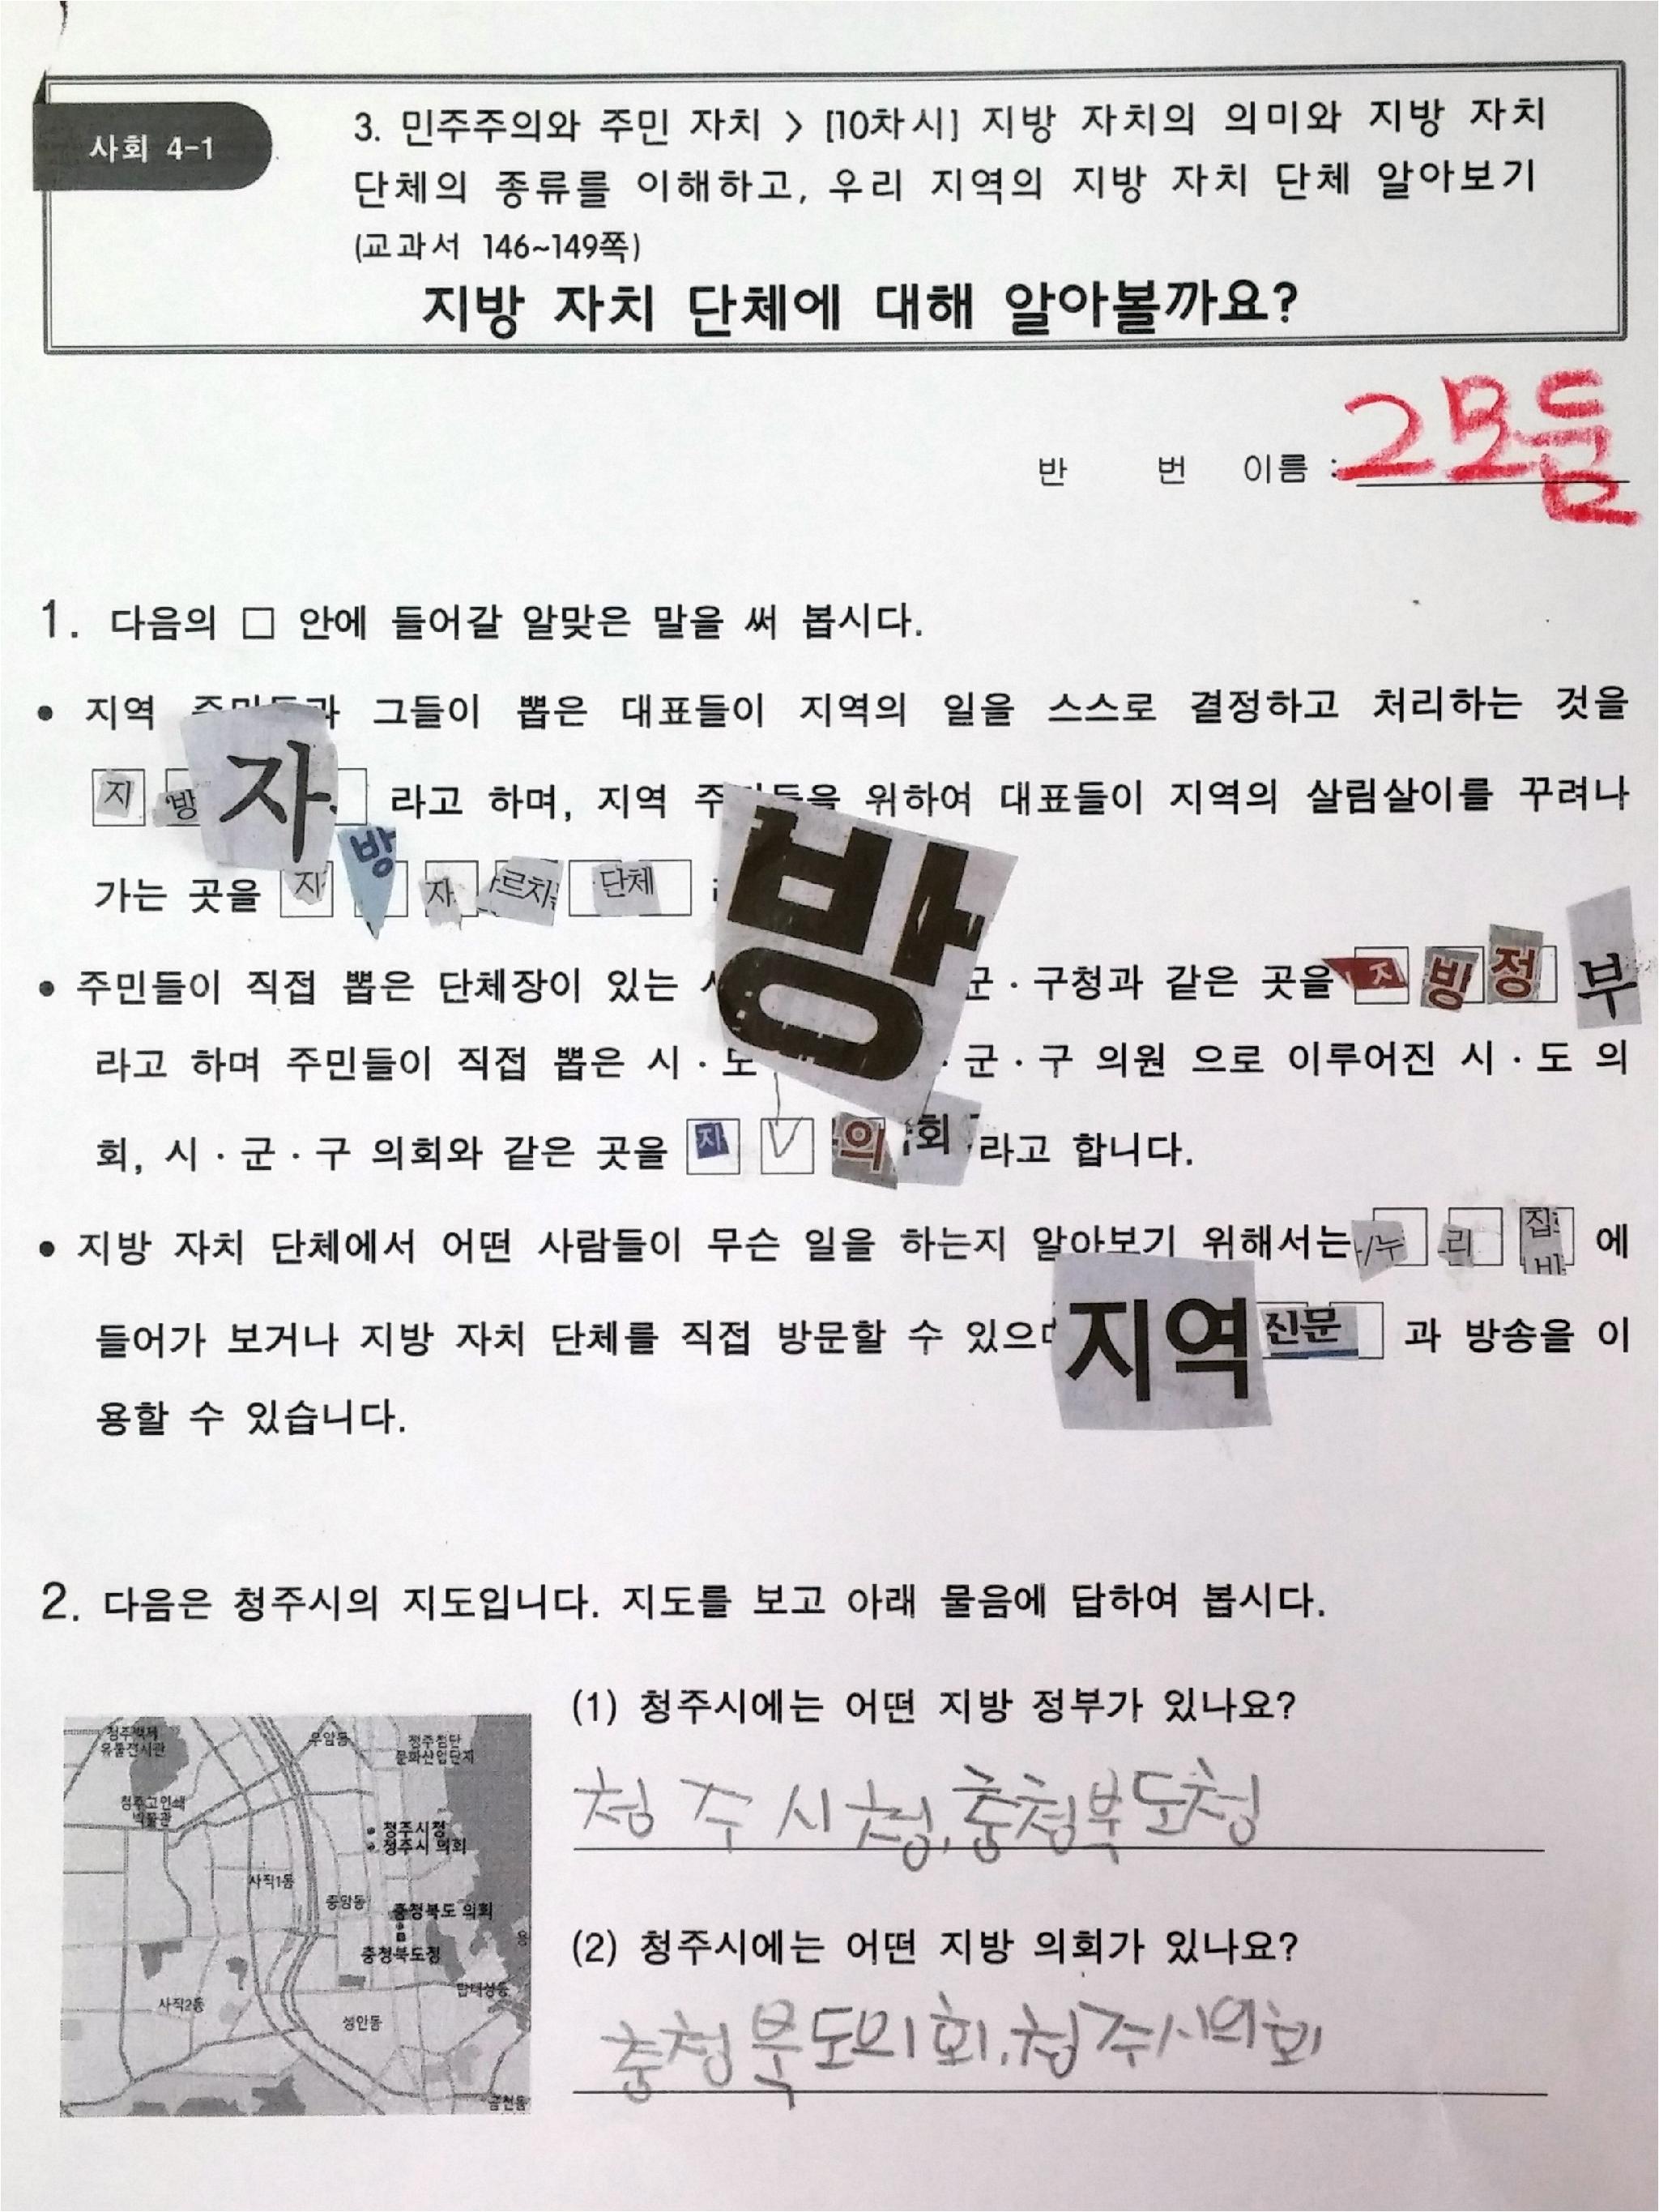 사회 4-1
3. 민주주의와 주민 자치 > [10차시] 지방 자치의 의미와 지방 자치
단체의 종류를 이해하고, 우리 지역의 지방 자치 단체 알아보기
(교과서 146~149쪽)
지방 자치 단체에 대해 알아볼까요?
반 번 이름 : 2모둠
1. 다음의 □ 안에 들어갈 알맞은 말을 써 봅시다.
• 지역 그들이 뽑은 대표들이 지역의 일을 스스로 결정하고 처리하는 것을
지 방 자 라고 하며, 지역 위하여 대표들이 지역의 살림살이를 꾸려나
가는 곳을 지 방 자 르치 단체
방
• 주민들이 직접 뽑은 단체장이 있는 군·구청과 같은 곳을 지 방 정 부
라고 하며 주민들이 직접 뽑은 시·도 ·군·구 의원 으로 이루어진 시·도 의
회, 시·군·구 의회와 같은 곳을 지 V 의 회 라고 합니다.
• 지방 자치 단체에서 어떤 사람들이 무슨 일을 하는지 알아보기 위해서는 누 리 집 에
들어가 보거나 지방 자치 단체를 직접 방문할 수 있으며 지역 신문 과 방송을 이
용할 수 있습니다.
2. 다음은 청주시의 지도입니다. 지도를 보고 아래 물음에 답하여 봅시다.
(1) 청주시에는 어떤 지방 정부가 있나요?
청주시청, 충청북도청
(2) 청주시에는 어떤 지방 의회가 있나요?
충청북도의회, 청주시의회
청주백제
유물전시관
우암동
청주첨단
문화산업단지
청주고인쇄
박물관
청주시청
청주시 의회
사직1동
중앙동
충청북도 의회
충청북도청
사직2동
성안동
탑대성동
금천동
용